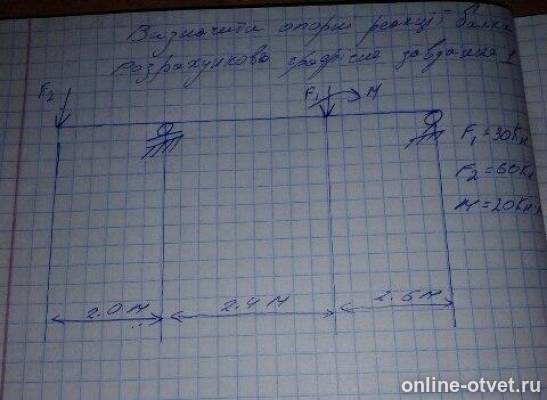 Визначити опорні реакції балки
Розрахунково графічне завдання 1
F₂
F₁ M
F₁=30Кн
F₂=60К
M=20Кн
2.0м
2.4м
2.6м
online-otvet.ru